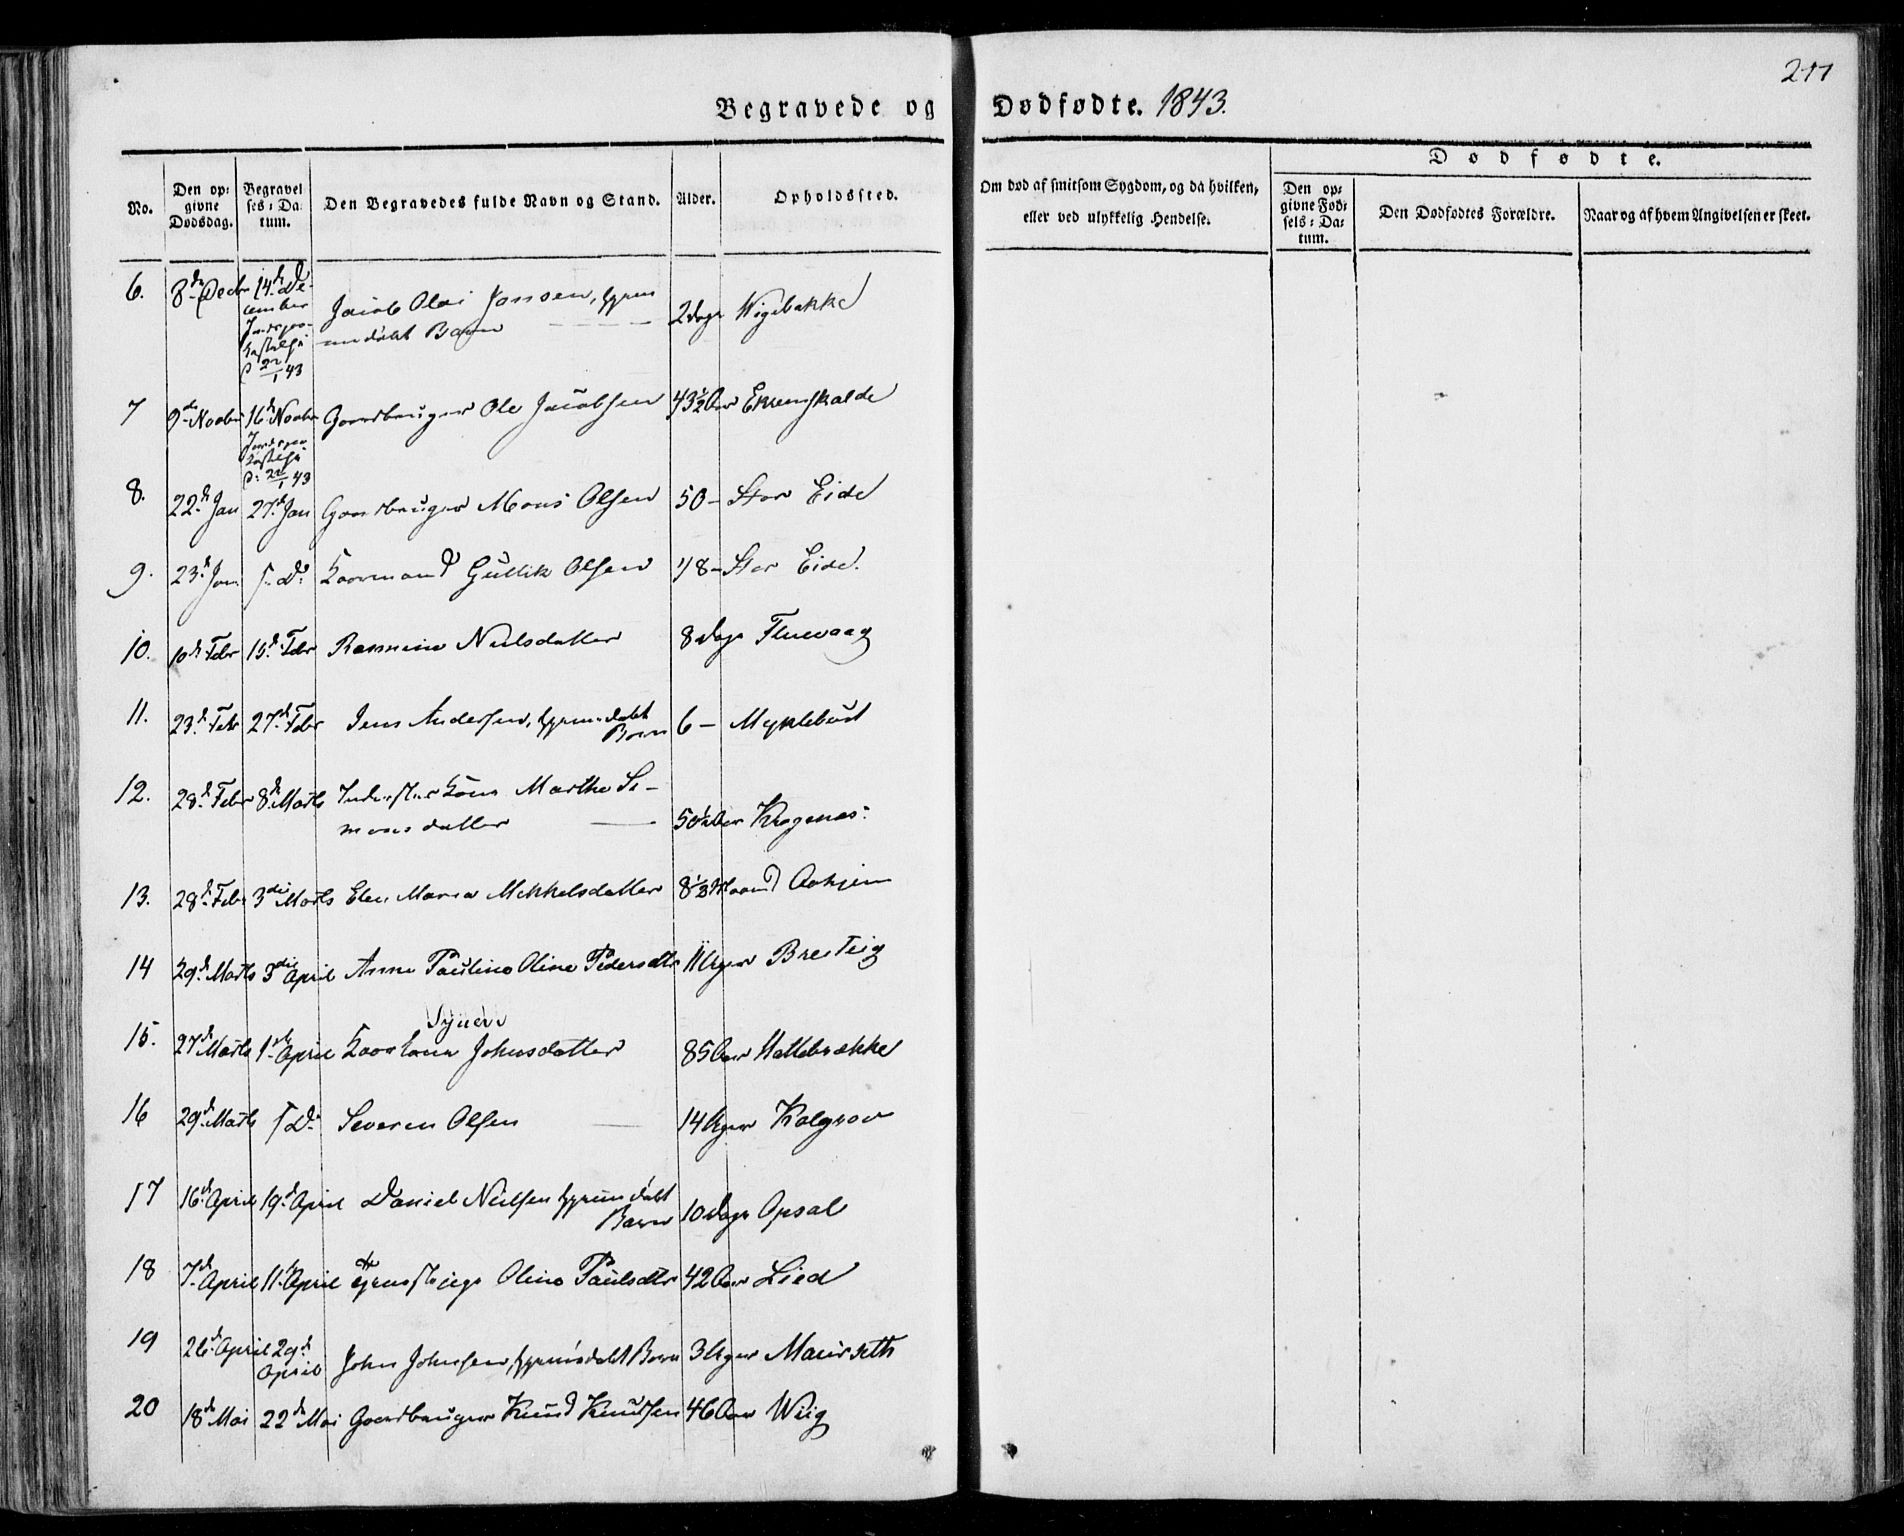 211
Begravede og Dødfødte. 1843.
No.
Den op-
givne
Dødsdag.
Begravel
ses-Da-
tum.
Den Begravedes fulde Navn og Stand.
Alder.
Opholdssted.
Om død af smitsom Sygdom, og da hvilken,
eller ved ulykkelig Hendelse.
Dødfødte.
Den op-
givne Fød-
sels-Da-
tum.
Den Dødfødtes Forældre.
Naar og af hvem Angivelsen er skeet.
6. 8de Decbr 14de De-
cember
Jordspaa-
kastelse
d 22/1 43
Jacob Olai Jonsen, hjem
medøbt Barn 2 Dage Wigebakke
7 9de Novbr 16de Novbr Gaardbruger Ole Jacobsen 43½ Aar Ekremskalde
Jordspaa-
kastelse
d: 22/1 43
8. 22de Jan 27de Jan Gaardbruger Mons Olsen 50 – Stor Eide
9. 23de Jan s. D. Kaarmand Gullik Olsen 78 – Stor Eide.
10. 10de Febr 15de Febr Rasmine Nielsdatter 8 Dage Fluevaag
11. 23de Febr 27de Febr Jens Andersen, hjemmedøbt
Barn 6 – Myklebust
12. 28de Febr 8de Marts Inderster Kone Marthe Si-
monsdatter 50½ Aar Kragenæs:
13. 28de Febr 3die Marts Elen Maria Mikkelsdatter 8½ Maaned Aahjem
14 29de Marts 3die April Anne Pauline Oline Pedersdtr 11 Uger Bresteig
Syneve
15. 27de Marts 1ste April Kaarkone Johnsdatter 85 Aar Hallebrække
16 29de Marts s D. Severen Olsen 14 Uger Kalgrov
17 16de April 19de April Daniel Nielsen hjemmedøbt
Barn 10 Dage Opsal
18 7de April 11te April Tjenestepige Oline Paulsdtr 42 Aar Lied
19 26de April 29de
April John Johnsen, hjemmedøbt Barn 3 Uger Maurseth
20 18de Mai 22de Mai Gaardbruger Knud Knudsen 46 Aar Wiig